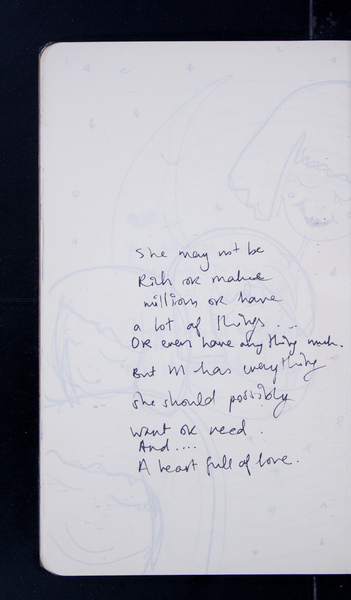 She may not be
Rich or make
millions or have
a lot of things ...
OR even have any thing much.
But M has everything
she should possibly
want or need.
And....
A heart full of love.